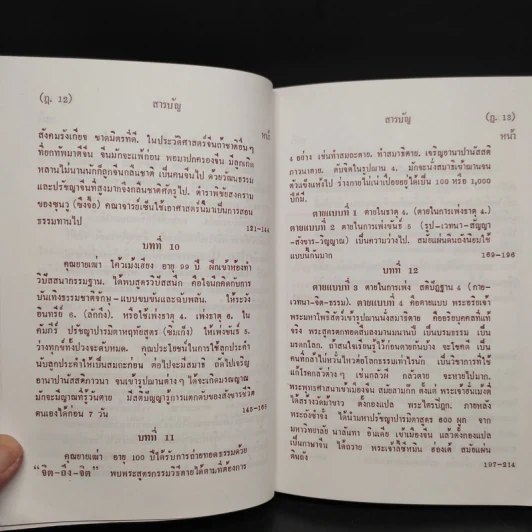 (ฎ. 12)
สารบัญ
หน้า
สังคมรังเกียจ ขาดมิตรที่ดี. ในประวัติศาสตร์จีนถ้าชาติอื่นๆ
ที่ยกทัพมาตีจีน จีนมักจะแพ้ก่อน พอมาปกครองจีน มีลูกเกิด
หลานไม่นานนักก็ถูกจีนกลืนชาติ เป็นคนจีนไป ด้วยวัฒนธรรม
และปรัชญาจีนที่สูงมากจึงกลืนชาติศัตรูไป. ตำราพิชัยสงคราม
ของซุนวู (ซึงจื้อ) คณาจารย์เซ็นใช้เอาศาสตร์นี้มาเป็นการสอน
ธรรมทานไป
121-144
บทที่ 10
คุณยายเฒ่า โค้วเม้งเฮียง อายุ 99 ปี ฝึกเข้าห้องทำ
วิปัสสนากรรมฐาน. ได้พบสูตรวิปัสสนึก คือใจนึกคิดกับการ
บันเทิงธรรมชาติจักษุ-แบบขบขันและฉบพลัน. ให้ระวัง
อินทรย์ 6. (สักกึง). หรือใช้เพ่งธาตุ 4. เพ่งธาตุ 6. ใน
คัมภีร์ ปรัชญาปารมิตาหฤทัยสูตร (ซิมเก็ง) ให้เพ่งขันธ์ 5.
ว่างทุกข์ทั้งปวงจะดับหมด. คุณประโยชน์ในการใช้ลูกประคำ
นับลูกประคำให้เป็นสมถะก่อน ต่อไปจะมีสมาธิ ถัดไปเจริญ
อานาปานัสสติภาวนา จนเข้ารูปฌานต่างๆ ได้จะเกิดมรณญาณ
มักจะมีญาณที่รู้วันตาย มีสติปัญญารู้การแตกดับของสังขารชีวิต
ตนเองได้ก่อน 7 วัน
บทที่ 11
คุณยายเฒ่า อายุ 100 ปีได้รับการถ่ายทอดธรรมด้วย
“จิต-ถึง-จิต” พบพระสูตรกรรมวิธีตายได้ตามที่ต้องการ
สารบัญ
(ฎ. 13)
หน้า
4 อย่าง เช่นทำสมถะตาย. ทำสมาธิตาย. เจริญอานาปานัสสติ
ภาวนาตาย. ดับจิตในรูปฌาน 4. มักจะนั่งสมาธิเข้าฌานจน
ตัวแข็งแห้งไป ร่างกายไม่เน่าเปื่อยอยู่ได้เป็น 100 หรือ 1,000
ปีก็มี.
ตายแบบที่ 1 ตายในธาตุ 4. (ตายในการเพ่งธาตุ 4.)
ตายแบบที่ 2 ตายในการเพ่งขันธ์ 5 (รูป-เวทนา-สัญญา
-สังขาร-วิญญาณ) เป็นความว่างไป. สมัยแผ่นดินถังนิยมใช้
แบบนี้กันมาก
169-196
บทที่ 12
ตายแบบที่ 3 ตายในการเพ่ง สติปัฏฐาน 4 (กาย-
เวทนา-จิต-ธรรม). ตายแบบที่ 4 คือตายแบบ พระอริยเจ้า
พระมหาโพธิสัตว์เข้ารูปฌานนั่งสมาธิตาย คืออริยบุคคลที่แท้
จริง พระสูตรตกทอดสืบลงมานมนานปี เป็นบรมธรรม เป็น
มรดกโลก. ถ้าสนใจเรียนรู้ไว้ก่อนตายกันบ้าง จะโชคดี เป็น
คนที่กล้าไม่หวั่นไหวต่อโลกธรรมเท่าไรนัก เป็นวิชาการที่ใช้
แก้โรคกลัวต่างๆ เช่นกลัวผี กลัวตาย จะหายไปมาก.
พระพุทธศาสนาเข้าเมืองจีน สมัยสามก๊ก
197-214